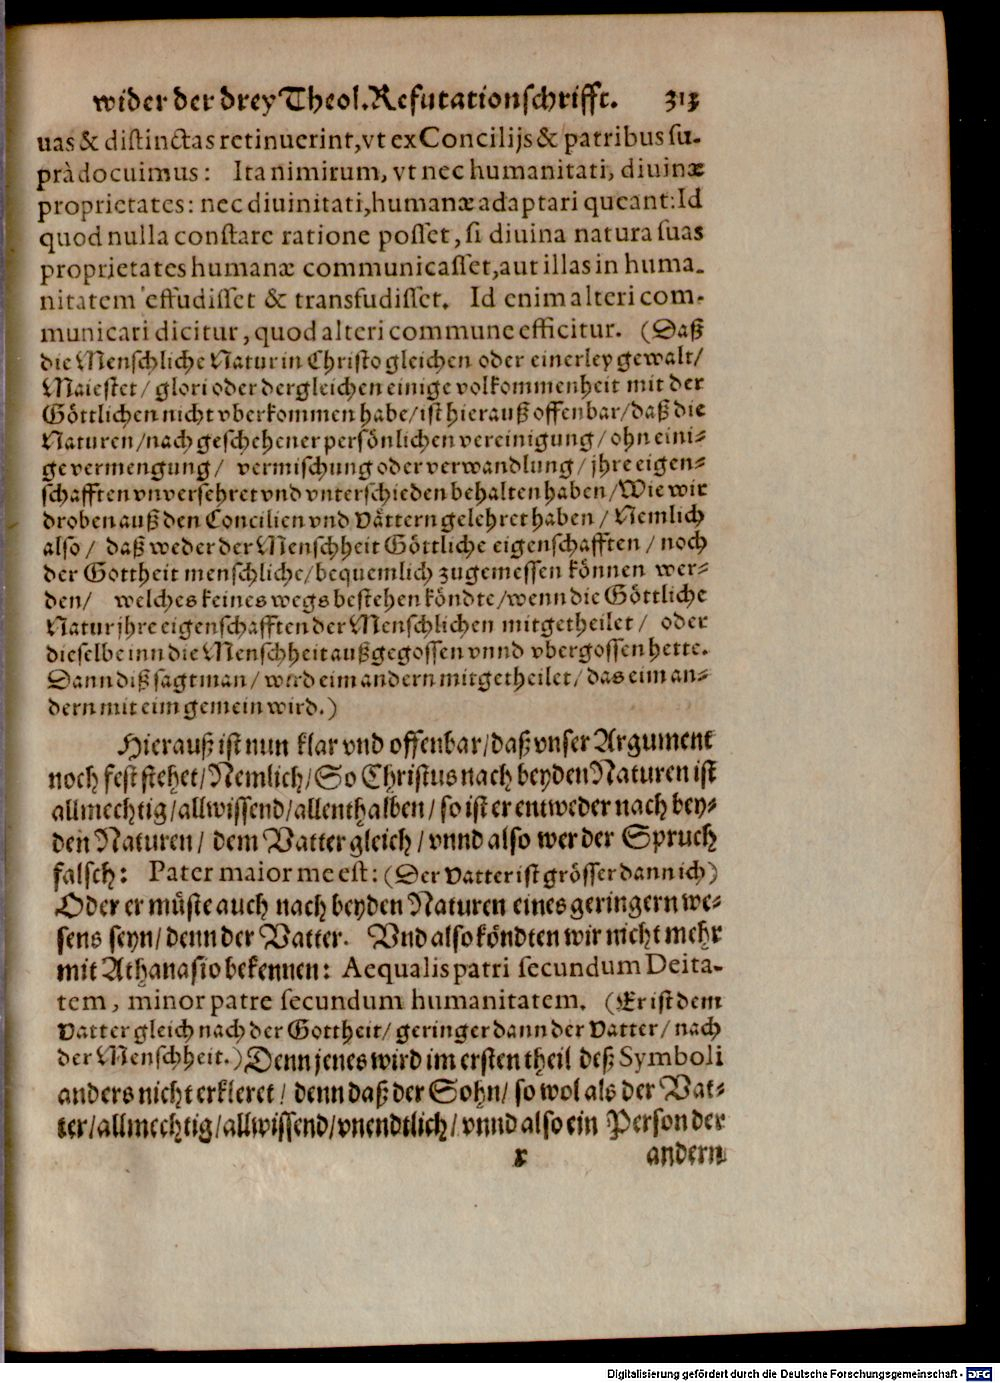 wider der drey Theol. Refutationschrifft. 313
uas & distinctas retinuerint, vt ex Concilijs & patribus su-
prà docuimus: Ita nimirum, vt nec humanitati, diuinæ
proprietates: nec diuinitati, humanæ adaptari queant: Id
quod nulla constare ratione posset, si diuina natura suas
proprietates humanæ communicasset, aut illas in huma-
nitatem effudisset & transfudisset. Id enim alteri com-
municari dicitur, quod alteri commune efficitur. (Daß
die Menschliche Natur in Christo gleichen oder einerley gewalt/
Maiestet/ glori oder dergleichen einige volkommenheit mit der
Göttlichen nicht vberkommen habe/ ist hierauß offenbar/ daß die
Naturen/ nach geschehener persönlichen vereinigung/ ohn eini-
ge vermengung/ vermischung oder verwandlung/ jhre eigen-
schafften vnversehret vnd vnterschieden behalten haben/ Wie wir
droben auß den Concilien vnd Vättern gelehret haben/ Nemlich
also/ daß weder der Menschheit Göttliche eigenschafften/ noch
der Gottheit menschliche/ bequemlich zugemessen können wer-
den/ welches keines wegs bestehen köndte/ wenn die Göttliche
Natur jhre eigenschafften der Menschlichen mitgetheilet/ oder
dieselbe inn die Menschheit außgegossen vnnd vbergossen hette.
Dann diß sagt man/ werd eim andern mitgetheilet/ das eim an-
dern mit eim gemein wird.)
Hierauß ist nun klar vnd offenbar/ daß vnser Argument
noch fest stehet/ Nemlich/ So Christus nach beyden Naturen ist
allmechtig/ allwissend/ allenthalben/ so ist er entweder nach bey-
den Naturen/ dem Vatter gleich/ vnnd also wer der Spruch
falsch: Pater maior me est: (Der Vatter ist grösser dann ich)
Oder er müste auch nach beyden Naturen eines geringern we-
sens seyn/ denn der Vatter. Vnd also köndten wir nicht mehr
mit Athanasio bekennen: Aequalis patri secundum Deita-
tem, minor patre secundum humanitatem. (Er ist dem
Vatter gleich nach der Gottheit/ geringer dann der Vatter/ nach
der Menschheit.) Denn jenes wird im ersten theil deß Symboli
anders nicht erkleret/ denn daß der Sohn/ so wol als der Vat-
ter/ allmechtig/ allwissend/ vnendtlich/ vnnd also ein Person der
x andern
Digitalisierung gefördert durch die Deutsche Forschungsgemeinschaft - DFG